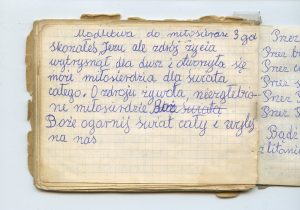 Modlitwa do miłosierdz 3 god
skonałeś, Jezu ale zdrój życia
wytrysnął dla dusz i otworzyło się
morze miłosierdzia dla świata
całego. O zdroju żywota, niezgłębio-
ne miłosierdzie Boże świata
Boże ogarnij świat cały i wylej
na nas
Przez
Przez
Przez
Przez
Przez
Przez
Bądź
z litanii